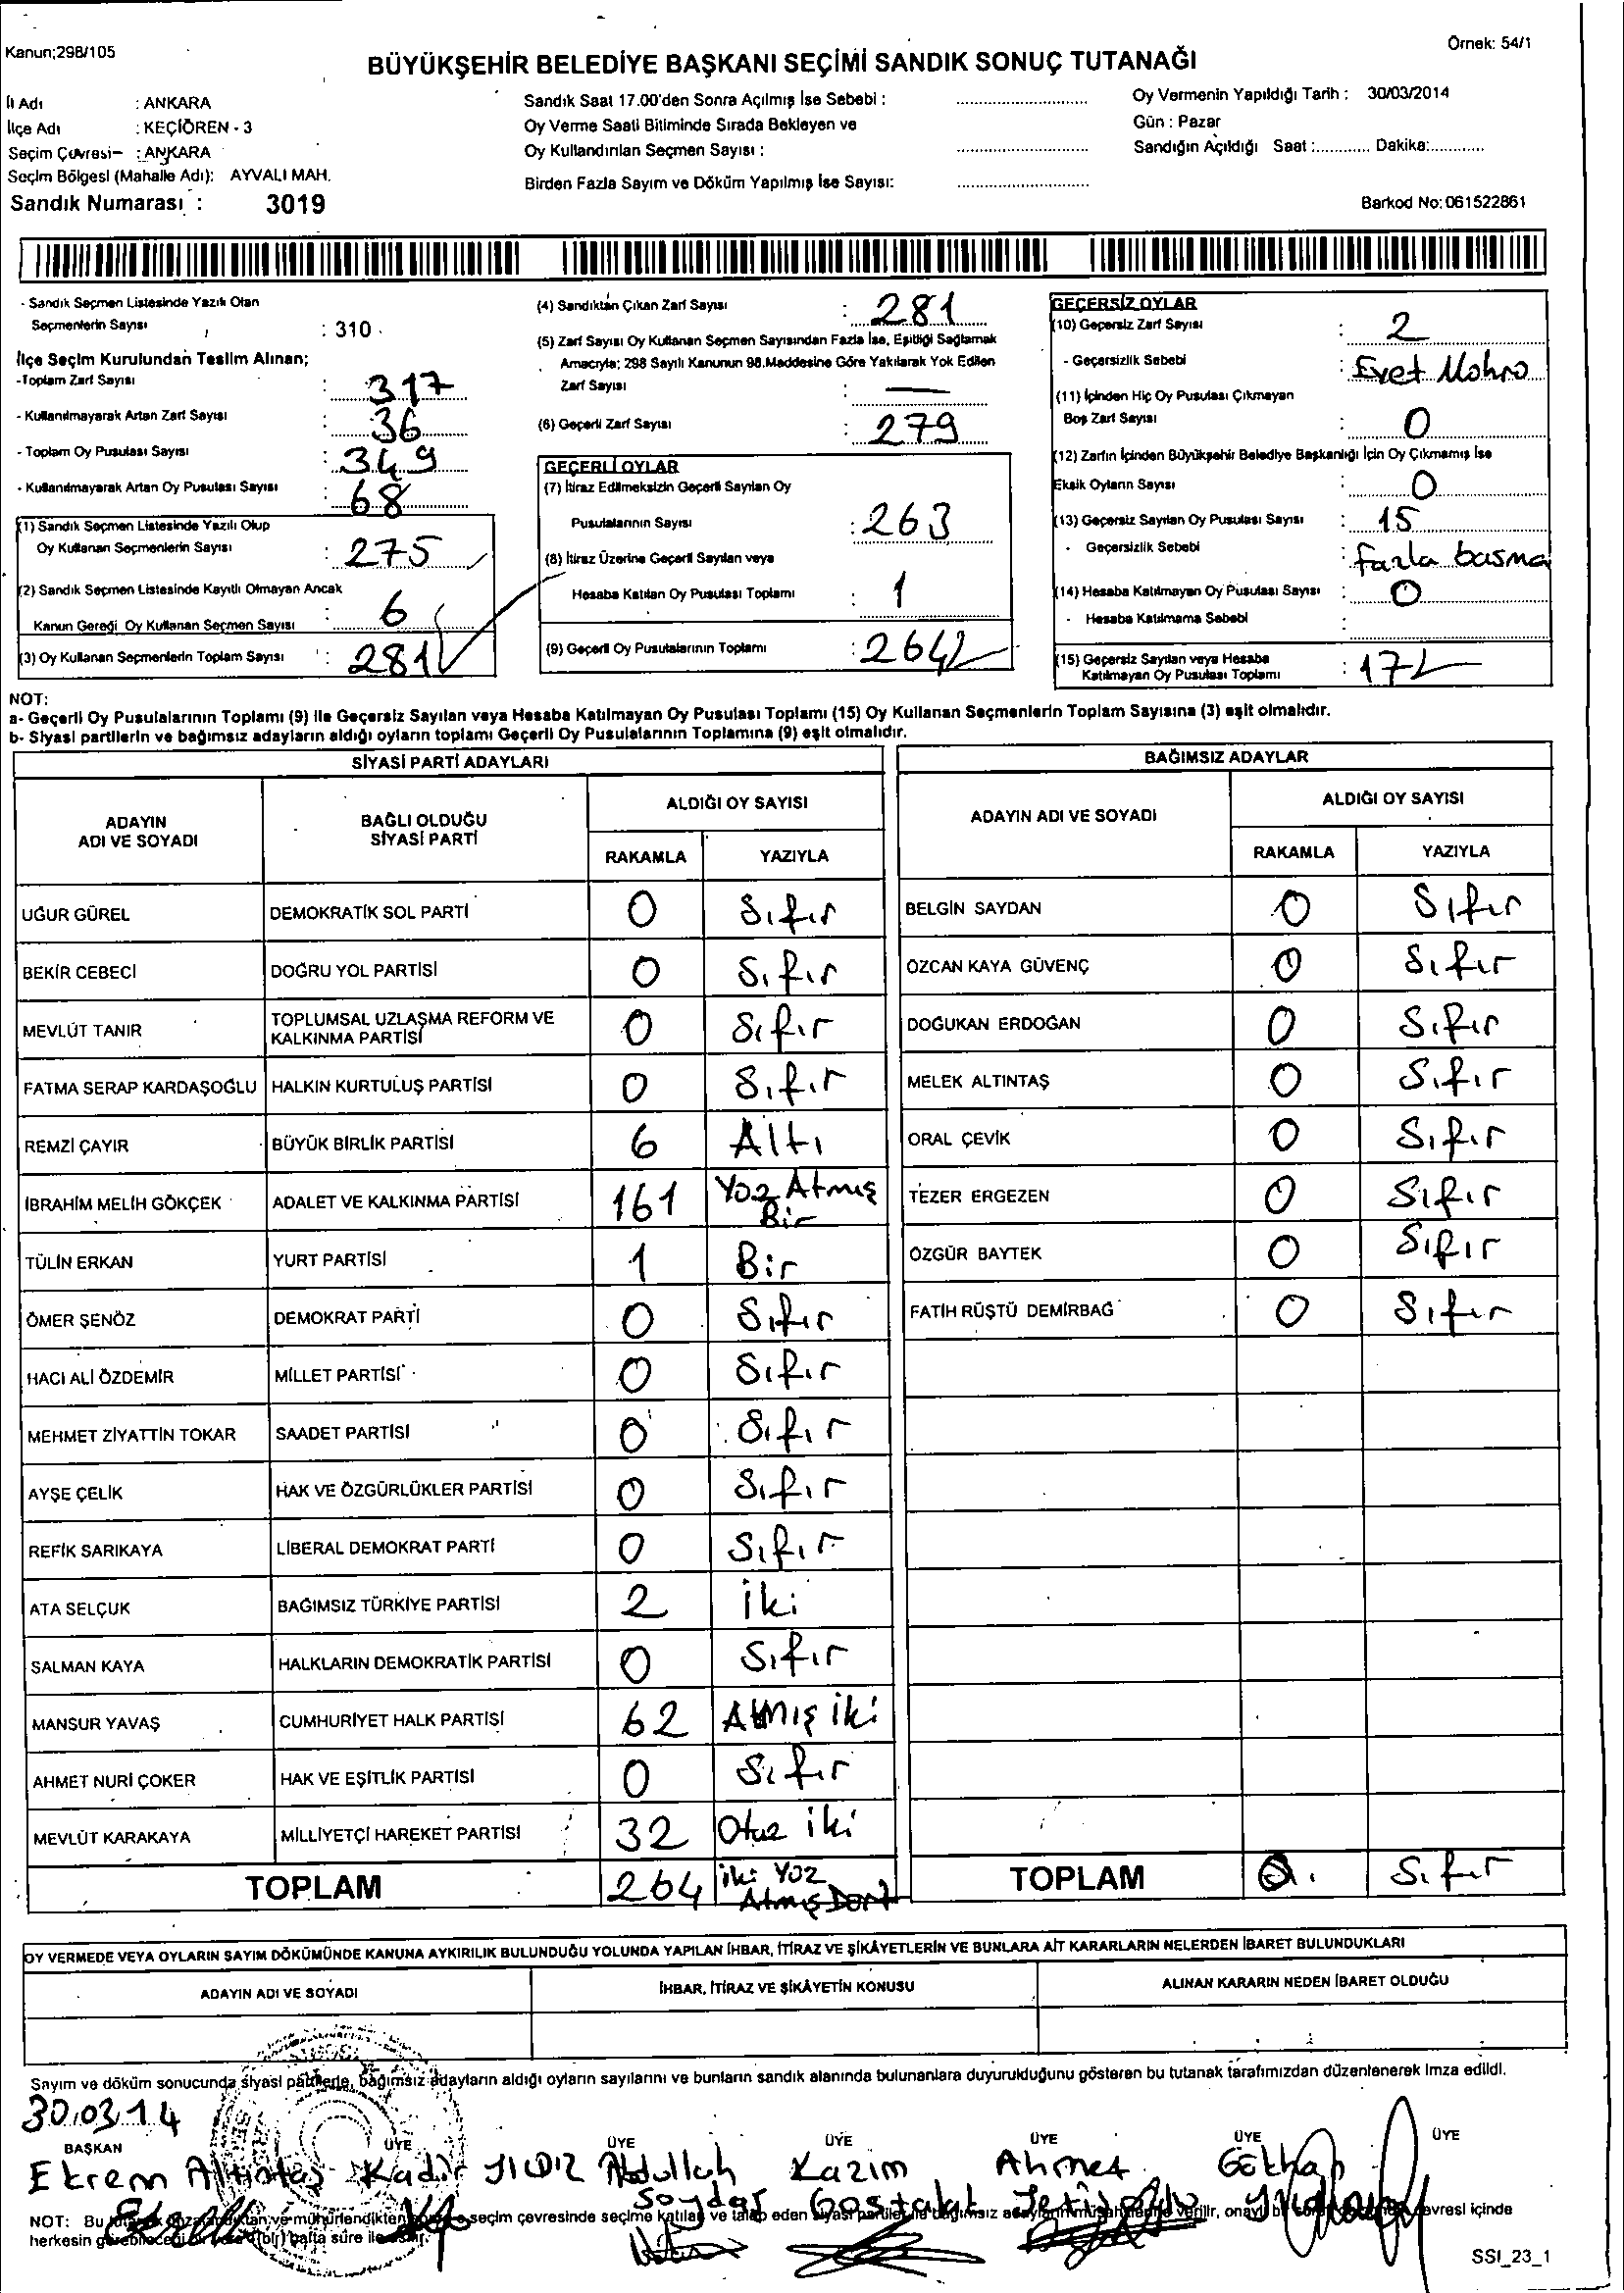 Kanun;298/105
Örnek: 54/1
BÜYÜKŞEHİR BELEDİYE BAŞKANI SEÇİMİ SANDIK SONUÇ TUTANAĞI
İl Adı : ANKARA
İlçe Adı : KEÇİÖREN - 3
Seçim Çevresi : ANKARA
Seçim Bölgesi (Mahalle Adı): AYVALI MAH.
Sandık Numarası : 3019
Sandık Saat 17.00'den Sonra Açılmış İse Sebebi : ............
Oy Verme Saati Bitiminde Sırada Bekleyen ve
Oy Kullandırılan Seçmen Sayısı : ............
Birden Fazla Sayım ve Döküm Yapılmış İse Sayısı: ............
Oy Vermenin Yapıldığı Tarih : 30/03/2014
Gün : Pazar
Sandığın Açıldığı Saat :............ Dakika:............
Barkod No: 061522861
- Sandık Seçmen Listesinde Yazılı Olan
Seçmenlerin Sayısı : 310
İlçe Seçim Kurulundan Teslim Alınan;
-Toplam Zarf Sayısı : 317
- Kullanılmayarak Artan Zarf Sayısı : 36
- Toplam Oy Pusulası Sayısı : 349
- Kullanılmayarak Artan Oy Pusulası Sayısı : 68
(1) Sandık Seçmen Listesinde Yazılı Olup
Oy Kullanan Seçmenlerin Sayısı : 275
(2) Sandık Seçmen Listesinde Kayıtlı Olmayan Ancak
Kanun Gereği Oy Kullanan Seçmen Sayısı : 6
(3) Oy Kullanan Seçmenlerin Toplam Sayısı : 281
(4) Sandıktan Çıkan Zarf Sayısı : 281
(5) Zarf Sayısı Oy Kullanan Seçmen Sayısından Fazla İse, Eşitliği Sağlamak
Amacıyla; 298 Sayılı Kanunun 98.Maddesine Göre Yakılarak Yok Edilen
Zarf Sayısı : —
(6) Geçerli Zarf Sayısı : 279
GEÇERLİ OYLAR
(7) İtiraz Edilmeksizin Geçerli Sayılan Oy
Pusulalarının Sayısı : 263
(8) İtiraz Üzerine Geçerli Sayılan veya
Hesaba Katılan Oy Pusulası Toplamı : 1
(9) Geçerli Oy Pusulalarının Toplamı : 264
GEÇERSİZ OYLAR
(10) Geçersiz Zarf Sayısı : 2
- Geçersizlik Sebebi : Evet Mohro
(11) İçinden Hiç Oy Pusulası Çıkmayan
Boş Zarf Sayısı : 0
(12) Zarfın İçinden Büyükşehir Belediye Başkanlığı İçin Oy Çıkmamış İse
Eksik Oyların Sayısı : 0
(13) Geçersiz Sayılan Oy Pusulası Sayısı : 15
- Geçersizlik Sebebi : fazla basma
(14) Hesaba Katılmayan Oy Pusulası Sayısı : 0
- Hesaba Katılmama Sebebi :
(15) Geçersiz Sayılan veya Hesaba
Katılmayan Oy Pusulası Toplamı : 17
NOT:
a- Geçerli Oy Pusulalarının Toplamı (9) ile Geçersiz Sayılan veya Hesaba Katılmayan Oy Pusulası Toplamı (15) Oy Kullanan Seçmenlerin Toplam Sayısına (3) eşit olmalıdır.
b- Siyasi partilerin ve bağımsız adayların aldığı oyların toplamı Geçerli Oy Pusulalarının Toplamına (9) eşit olmalıdır.
SİYASİ PARTİ ADAYLARI
ADAYIN ADI VE SOYADI | BAĞLI OLDUĞU SİYASİ PARTİ | ALDIĞI OY SAYISI
RAKAMLA | YAZIYLA
UĞUR GÜREL DEMOKRATİK SOL PARTİ 0 Sıfır
BEKİR CEBECİ DOĞRU YOL PARTİSİ 0 Sıfır
MEVLÜT TANIR TOPLUMSAL UZLAŞMA REFORM VE KALKINMA PARTİSİ 0 Sıfır
FATMA SERAP KARDAŞOĞLU HALKIN KURTULUŞ PARTİSİ 0 Sıfır
REMZİ ÇAYIR BÜYÜK BİRLİK PARTİSİ 6 Altı
İBRAHİM MELİH GÖKÇEK ADALET VE KALKINMA PARTİSİ 161 Yüz Atmış Bir
TÜLİN ERKAN YURT PARTİSİ 1 Bir
ÖMER ŞENÖZ DEMOKRAT PARTİ 0 Sıfır
HACI ALİ ÖZDEMİR MİLLET PARTİSİ 0 Sıfır
MEHMET ZİYATTİN TOKAR SAADET PARTİSİ 0 Sıfır
AYŞE ÇELİK HAK VE ÖZGÜRLÜKLER PARTİSİ 0 Sıfır
REFİK SARIKAYA LİBERAL DEMOKRAT PARTİ 0 Sıfır
ATA SELÇUK BAĞIMSIZ TÜRKİYE PARTİSİ 2 iki
SALMAN KAYA HALKLARIN DEMOKRATİK PARTİSİ 0 Sıfır
MANSUR YAVAŞ CUMHURİYET HALK PARTİSİ 62 Atmış iki
AHMET NURİ ÇOKER HAK VE EŞİTLİK PARTİSİ 0 Sıfır
MEVLÜT KARAKAYA MİLLİYETÇİ HAREKET PARTİSİ 32 Otuz iki
TOPLAM 264 iki Yüz Atmış Dört
BAĞIMSIZ ADAYLAR
ADAYIN ADI VE SOYADI | ALDIĞI OY SAYISI
RAKAMLA | YAZIYLA
BELGİN SAYDAN 0 Sıfır
ÖZCAN KAYA GÜVENÇ 0 Sıfır
DOĞUKAN ERDOĞAN 0 Sıfır
MELEK ALTINTAŞ 0 Sıfır
ORAL ÇEVİK 0 Sıfır
TEZER ERGEZEN 0 Sıfır
ÖZGÜR BAYTEK 0 Sıfır
FATİH RÜŞTÜ DEMİRBAĞ 0 Sıfır
TOPLAM 0 Sıfır
OY VERMEDE VEYA OYLARIN SAYIM DÖKÜMÜNDE KANUNA AYKIRILIK BULUNDUĞU YOLUNDA YAPILAN İHBAR, İTİRAZ VE ŞİKÂYETLERİN VE BUNLARA AİT KARARLARIN NELERDEN İBARET BULUNDUKLARI
ADAYIN ADI VE SOYADI | İHBAR, İTİRAZ VE ŞİKÂYETİN KONUSU | ALINAN KARARIN NEDEN İBARET OLDUĞU
Sayım ve döküm sonucunda siyasi partilerle, bağımsız adayların aldığı oyların sayılarını ve bunların sandık alanında bulunanlara duyurulduğunu gösteren bu tutanak tarafımızdan düzenlenerek imza edildi.
30.03.14
BAŞKAN ÜYE ÜYE ÜYE ÜYE ÜYE ÜYE
Ekrem Altıntaş Kadir YILDIZ Abdullah Kazım Ahmet Gökhan
Soydar
NOT: Bu seçim çevresinde seçime katılan ve talep eden verilir, çevresi içinde
herkesin hafta süre ile
SSI_23_1